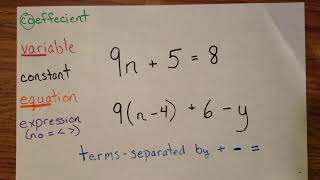 coeffecient
variable
constant
equation
expression
(no = < >)
9n + 5 = 8
9(n-4) + 6 - y
terms - separated by + - =